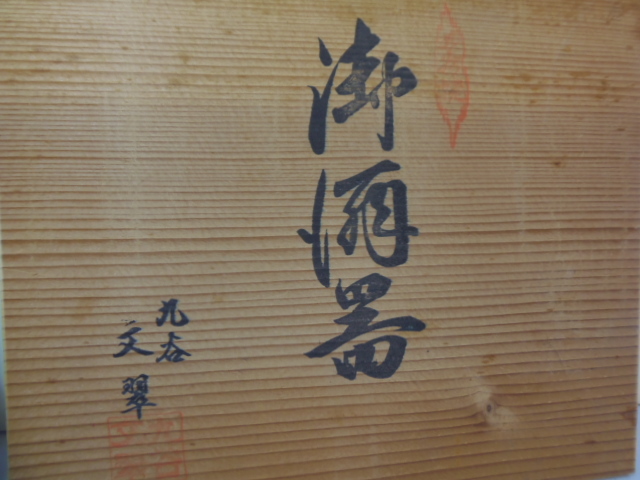 御酒器
九谷
文翠